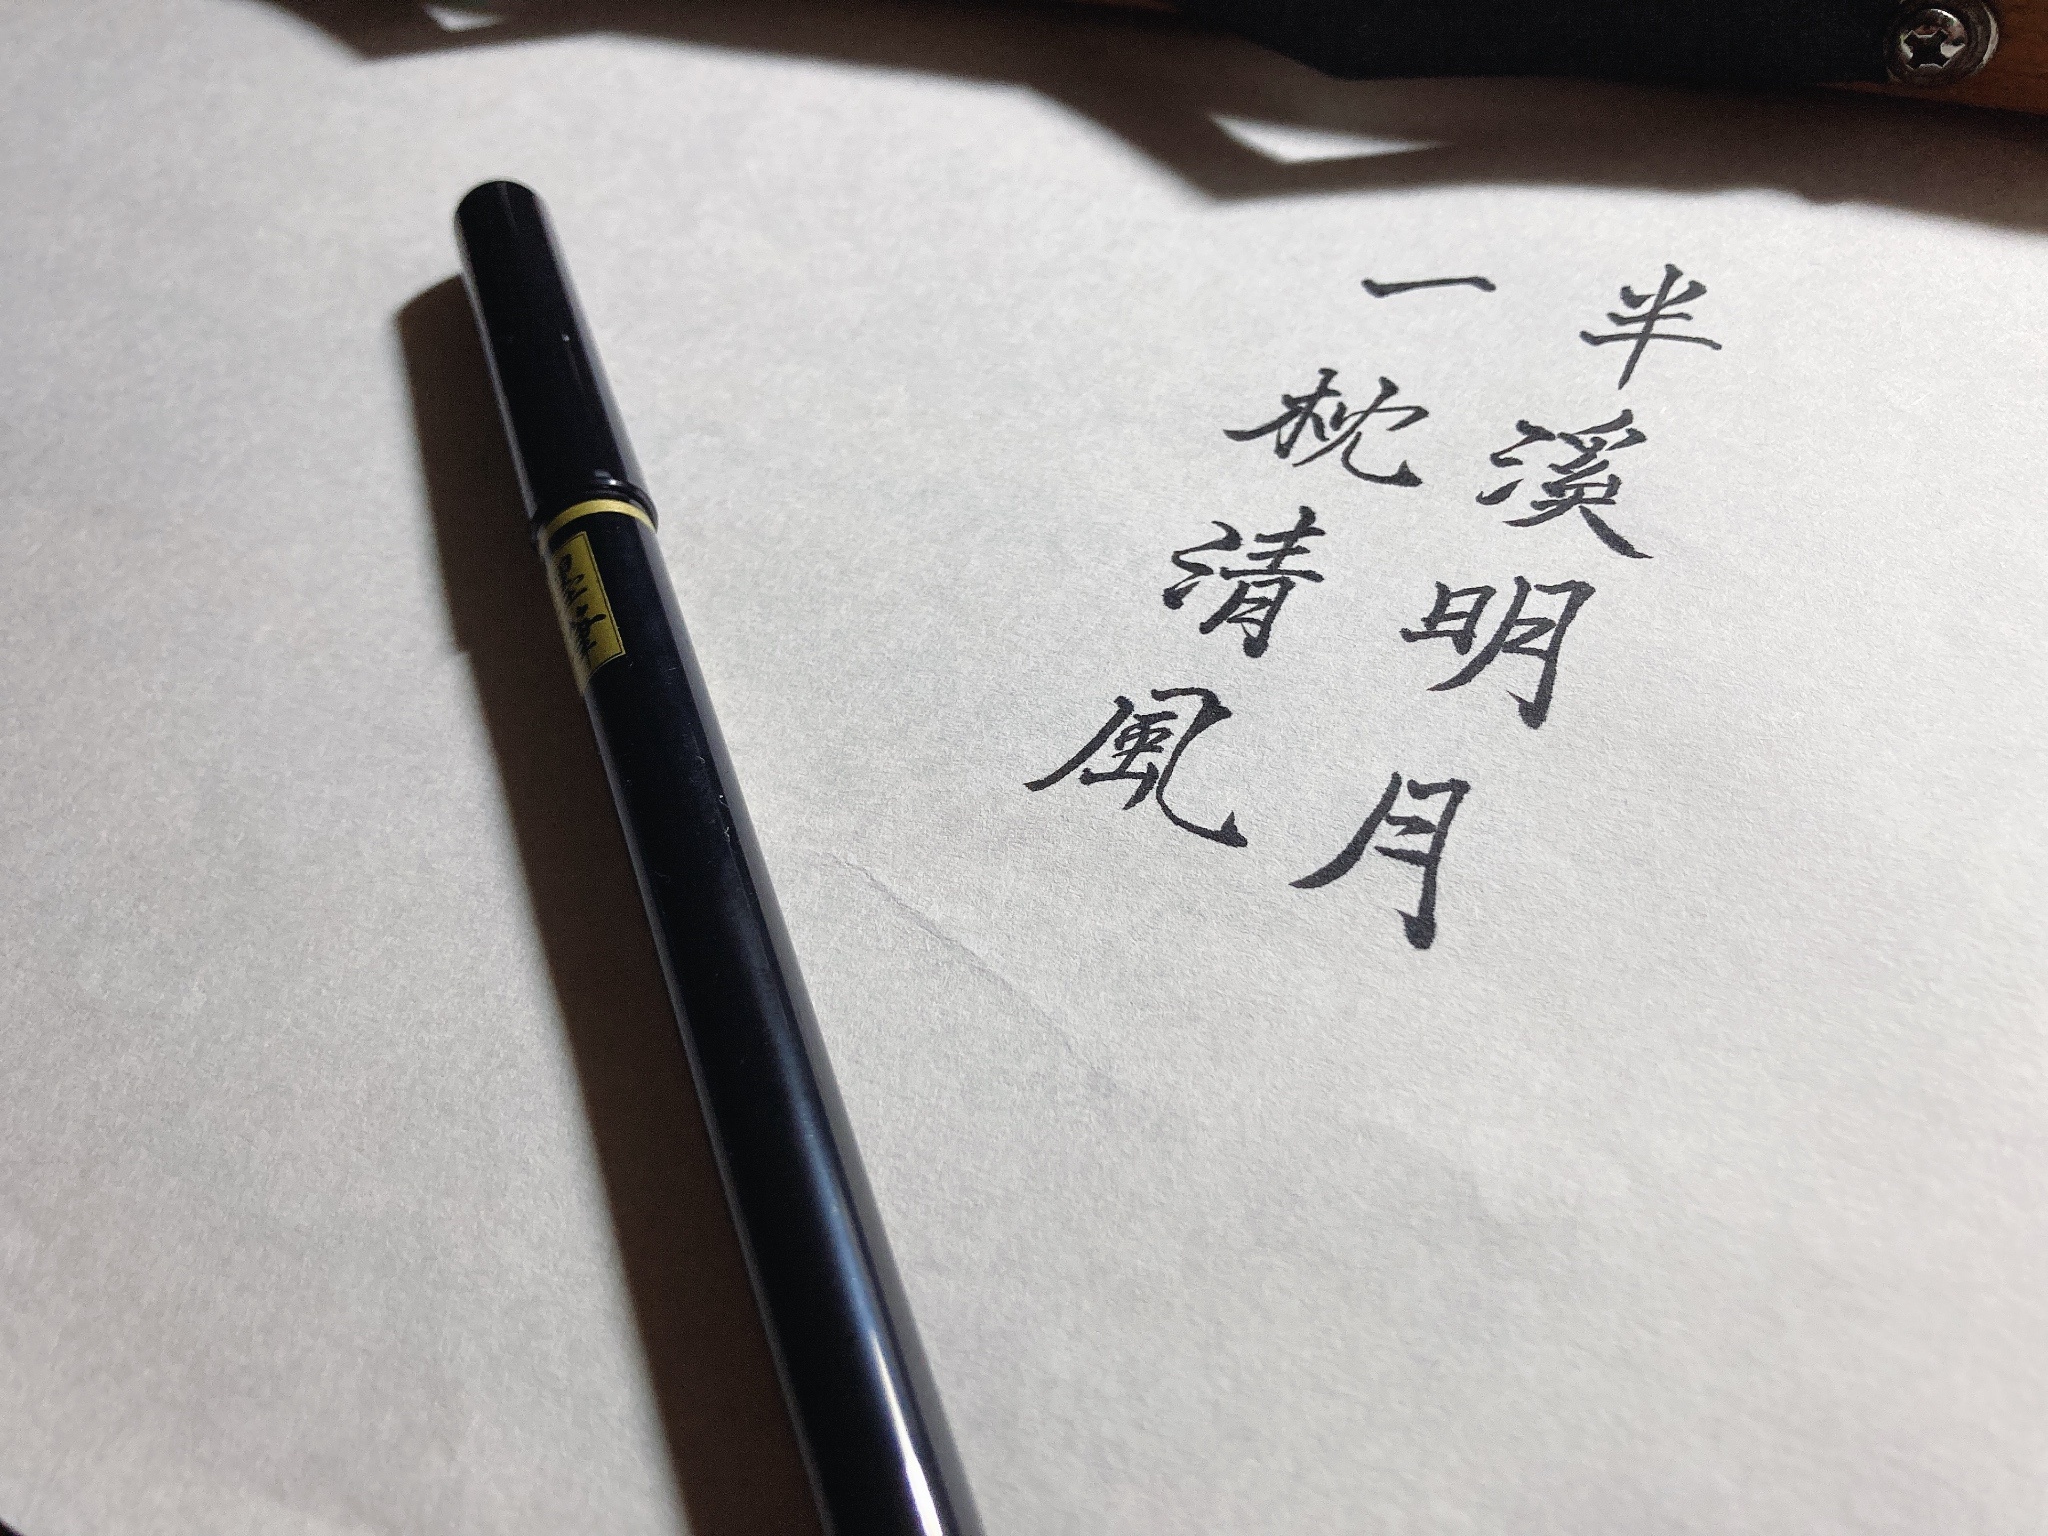 半溪明月
一枕清風